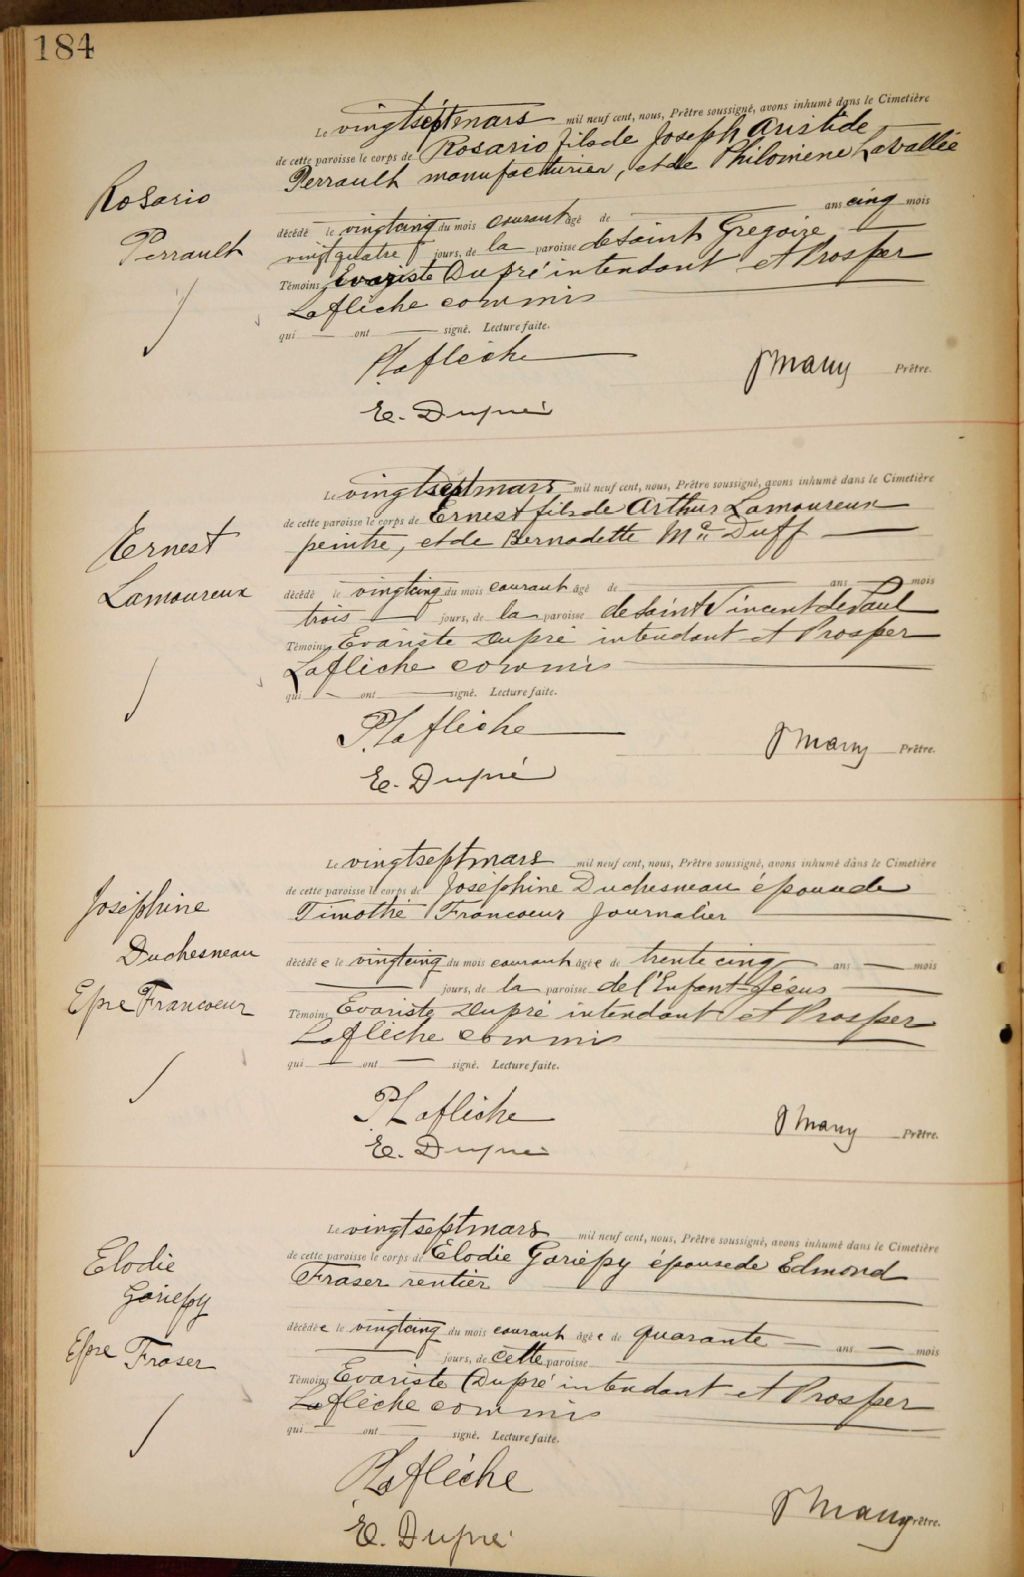 184
Le vingtsept mars mil neuf cent, nous, Prêtre soussigné, avons inhumé dans le Cimetière
de cette paroisse le corps de Rosario fils de Joseph Aristide
Perrault manufacturier, et de Philomène Lavallée
Rosario
Perrault
décédé le vingtcinq du mois courant âgé de ans cinq mois
vingt quatre jours, de la paroisse de Saint Grégoire
Témoins Evariste Dupré intendant et Prosper
Laflèche commis
qui ont signé. Lecture faite.
P Laflèche
E. Dupré
Prêtre.
Le vingtsept mars mil neuf cent, nous, Prêtre soussigné, avons inhumé dans le Cimetière
de cette paroisse le corps de Ernest fils de Arthur Lamoureux
peintre, et de Bernadette Mc Duff
Ernest
Lamoureux
décédé le vingtcinq du mois courant âgé de ans mois
trois jours, de la paroisse de Saint Vincent de Paul
Témoins Evariste Dupré intendant et Prosper
Laflèche commis
qui ont signé. Lecture faite.
P. Laflèche
E. Dupré
Prêtre.
Le vingtsept mars mil neuf cent, nous, Prêtre soussigné, avons inhumé dans le Cimetière
de cette paroisse le corps de Joséphine Duchesneau épouse de
Timothé Francoeur journalier
Joséphine
Duchesneau
Epse Francoeur
décédée le vingtcinq du mois courant âgée de trente cinq ans mois
jours, de la paroisse de l'Enfant-Jésus
Témoins Evariste Dupré intendant et Prosper
Laflèche commis
qui ont signé. Lecture faite.
P Laflèche
E. Dupré
Prêtre.
Le vingtsept mars mil neuf cent, nous, Prêtre soussigné, avons inhumé dans le Cimetière
de cette paroisse le corps de Elodie Gariépy épouse de Edmond
Fraser rentier
Elodie
Gariépy
Epse Fraser
décédée le vingtcinq du mois courant âgée de quarante ans mois
jours, de cette paroisse
Témoins Evariste Dupré intendant et Prosper
Laflèche commis
qui ont signé. Lecture faite.
P Laflèche
E. Dupré
Prêtre.